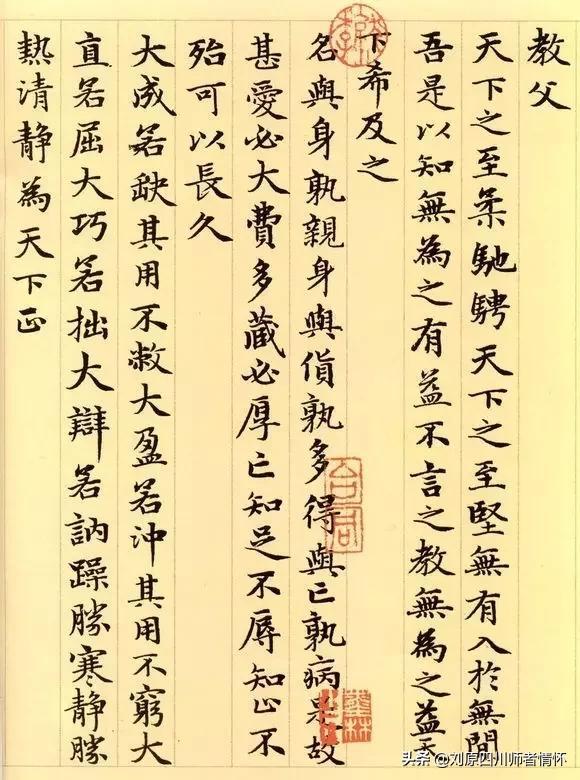 教父
天下之至柔馳騁天下之至堅無有入於無間
吾是以知無為之有益不言之教無為之益天
下希及之
名與身孰親身與貨孰多得與亡孰病是故
甚愛必大費多藏必厚亡知足不辱知止不
殆可以長久
大成若缺其用不敝大盈若沖其用不窮大
直若屈大巧若拙大辯若訥躁勝寒靜勝
熱清靜為天下正
头条 @刘原四川师者情怀